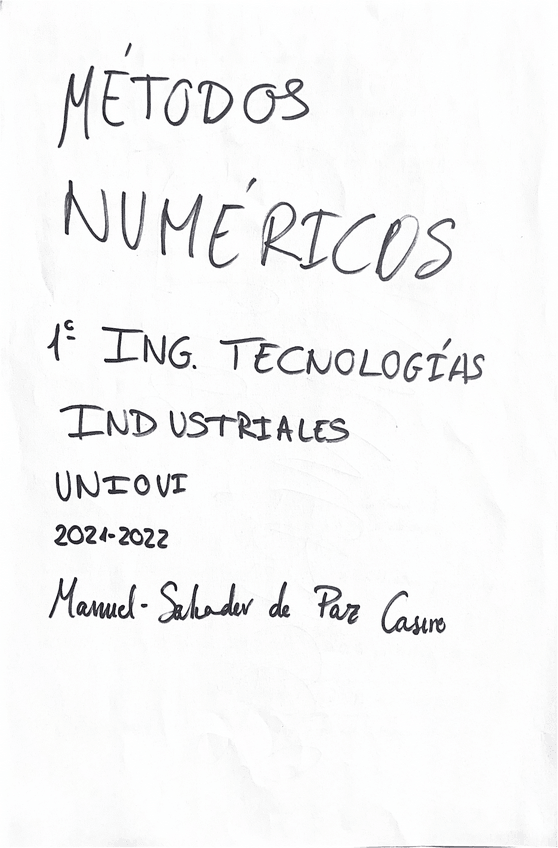 MÉTODOS
NUMÉRICOS
1º ING. TECNOLOGÍAS
INDUSTRIALES
UNIOVI
2021-2022
Manuel-Salvador de Paz Casero